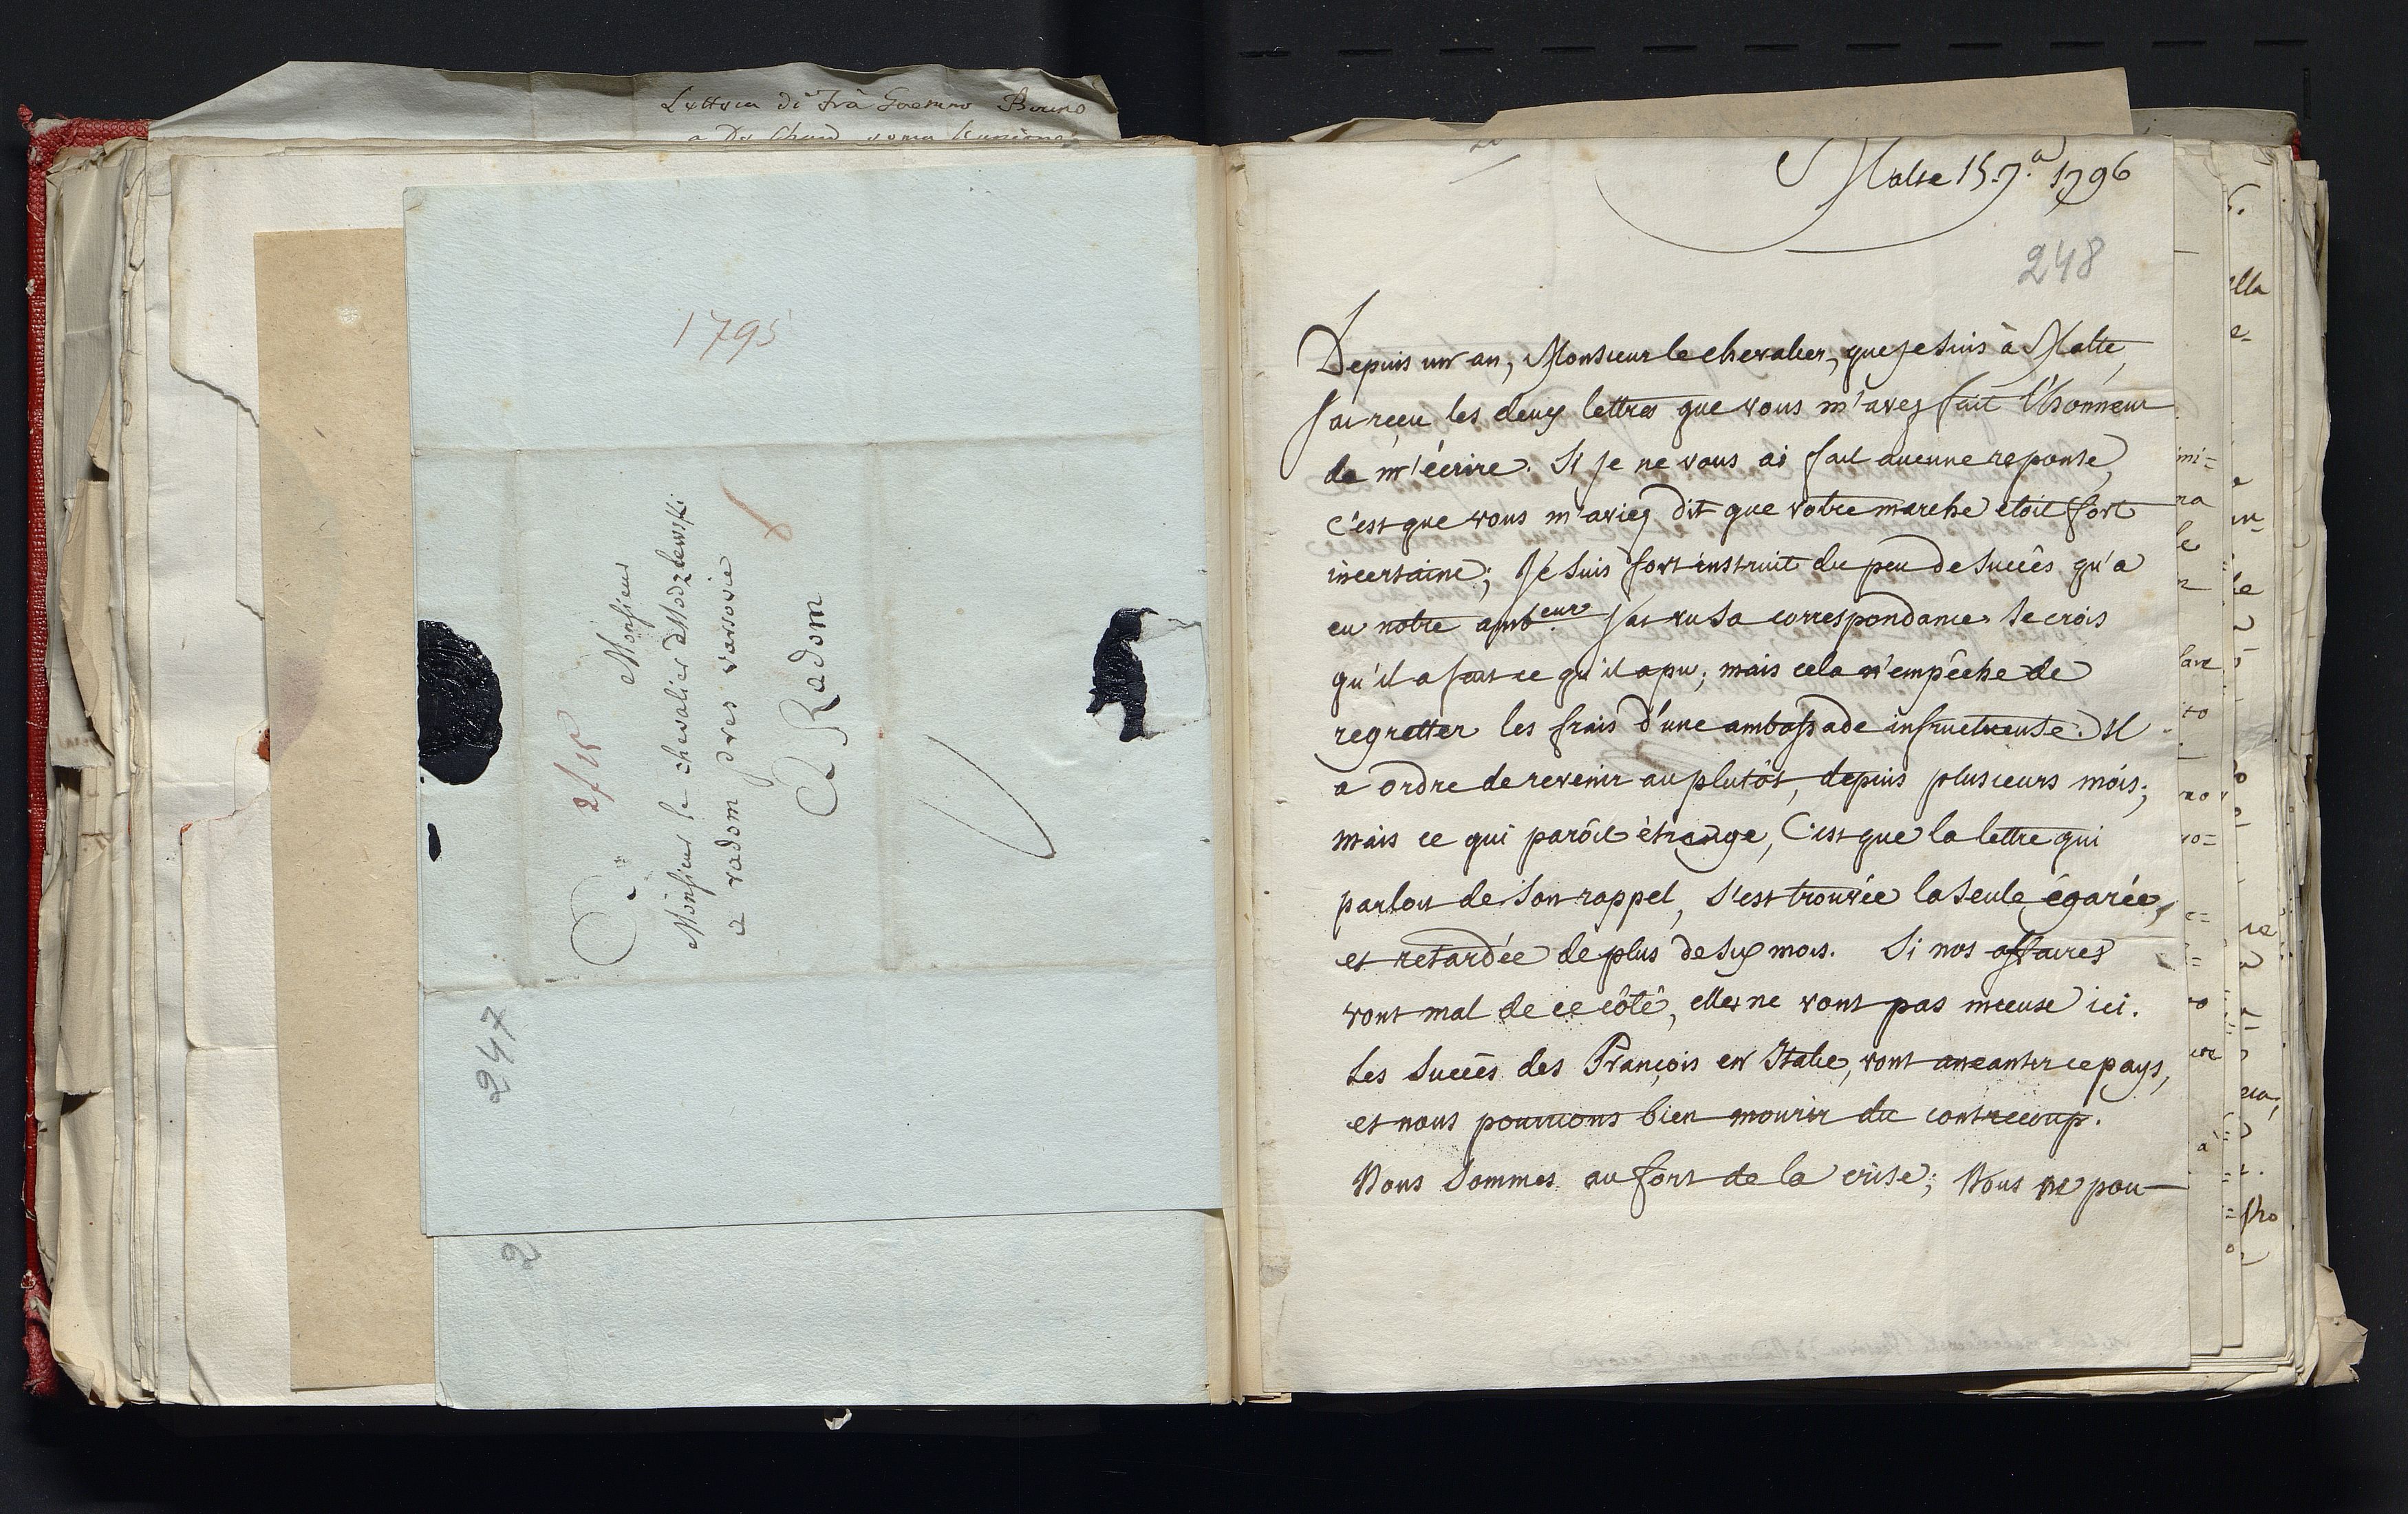 Lettera di Frà Gaetano Bruno
1795
2/15
à Monsieur
Monsieur le chevalier de Modzlewski
à radom pres varsovie
à Radom
247
2
Malte 15. 7.ª 1796
248
Depuis un an, Monsieur le chevalier, que je suis à Malte,
J'ai reçu les deux lettres que vous m'avez fait l'honneur
de m'écrire. Si je ne vous ai fait aucune reponse,
c'est que vous m'aviez dit que votre marche étoit fort
incertaine; Je suis fort instruit du peu de succès qu'a
eu notre ambeur J'ai vu sa correspondance. Je crois
qu'il a fait ce qu'il a pu; mais cela n'empêche de
regretter les frais d'une ambassade infructueuse. Il
a ordre de revenir au plutôt, depuis plusieurs mois;
mais ce qui paroît étrange, C'est que la lettre qui
parloit de son rappel, s'est trouvée la seule égarée,
et retardée de plus de six mois. Si nos affaires
vont mal de ce côté, elles ne vont pas mieuse ici.
Les succès des François en Italie, vont aneantir ce pays,
et nous pourrions bien mourir du contrecoup.
Nous sommes au fort de la crise; Nous ne pou-